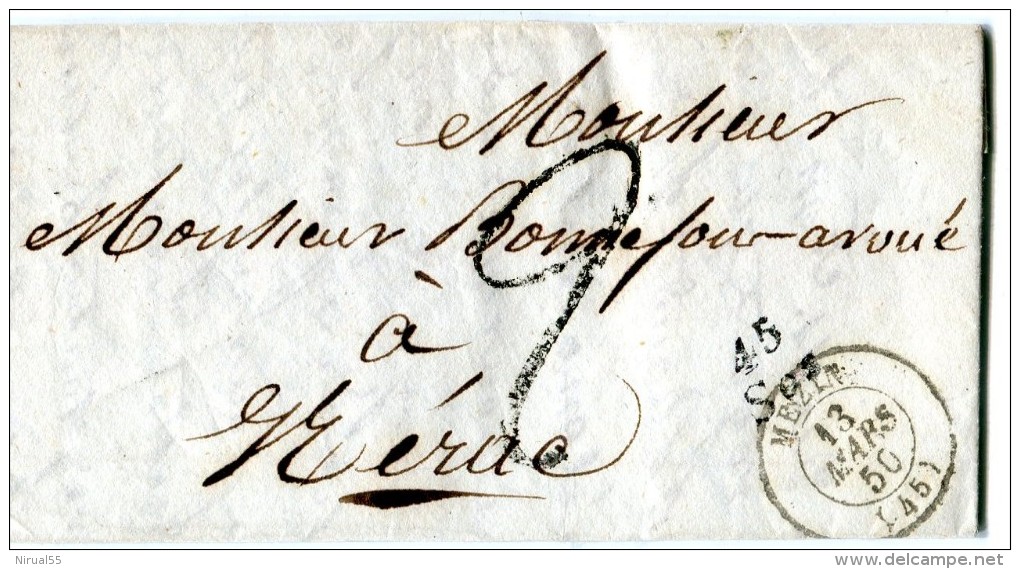 Monsieur
Monsieur Bonnefour avoué
à
Nérac
2
45
MEZIN
13
MARS
50
(45)
Nirual55
www.delcampe.net